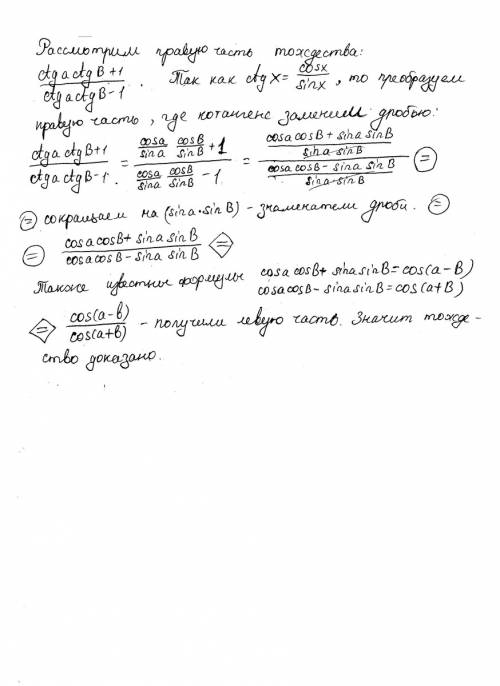 Рассмотрим правую часть тождества:
(ctg a ctg B+1)/(ctg a ctg B-1). Так как ctg x = cosx/sinx, то преобразуем
правую часть, где котангенс заменим дробью:
(ctg a ctg B+1)/(ctg a ctg B-1.) = (cosa/sina cosB/sinB +1)/(cosa/sina cosB/sinB - 1) = ((cosa cosB + sina sinB)/(sina·sinB))/((cosa cosB - sina sinB)/(sina·sinB)) =
= сокращаем на (sina·sinB) - знаменатели дроби. =
= (cosa cosB + sina sinB)/(cosa cosB - sina sinB) =
Также известные формулы cosa cosB + sina sinB = cos(a-B)
cosa cosB - sina sinB = cos(a+B)
= cos(a-b)/cos(a+b) - получили левую часть. Значит тожде-
ство доказано.